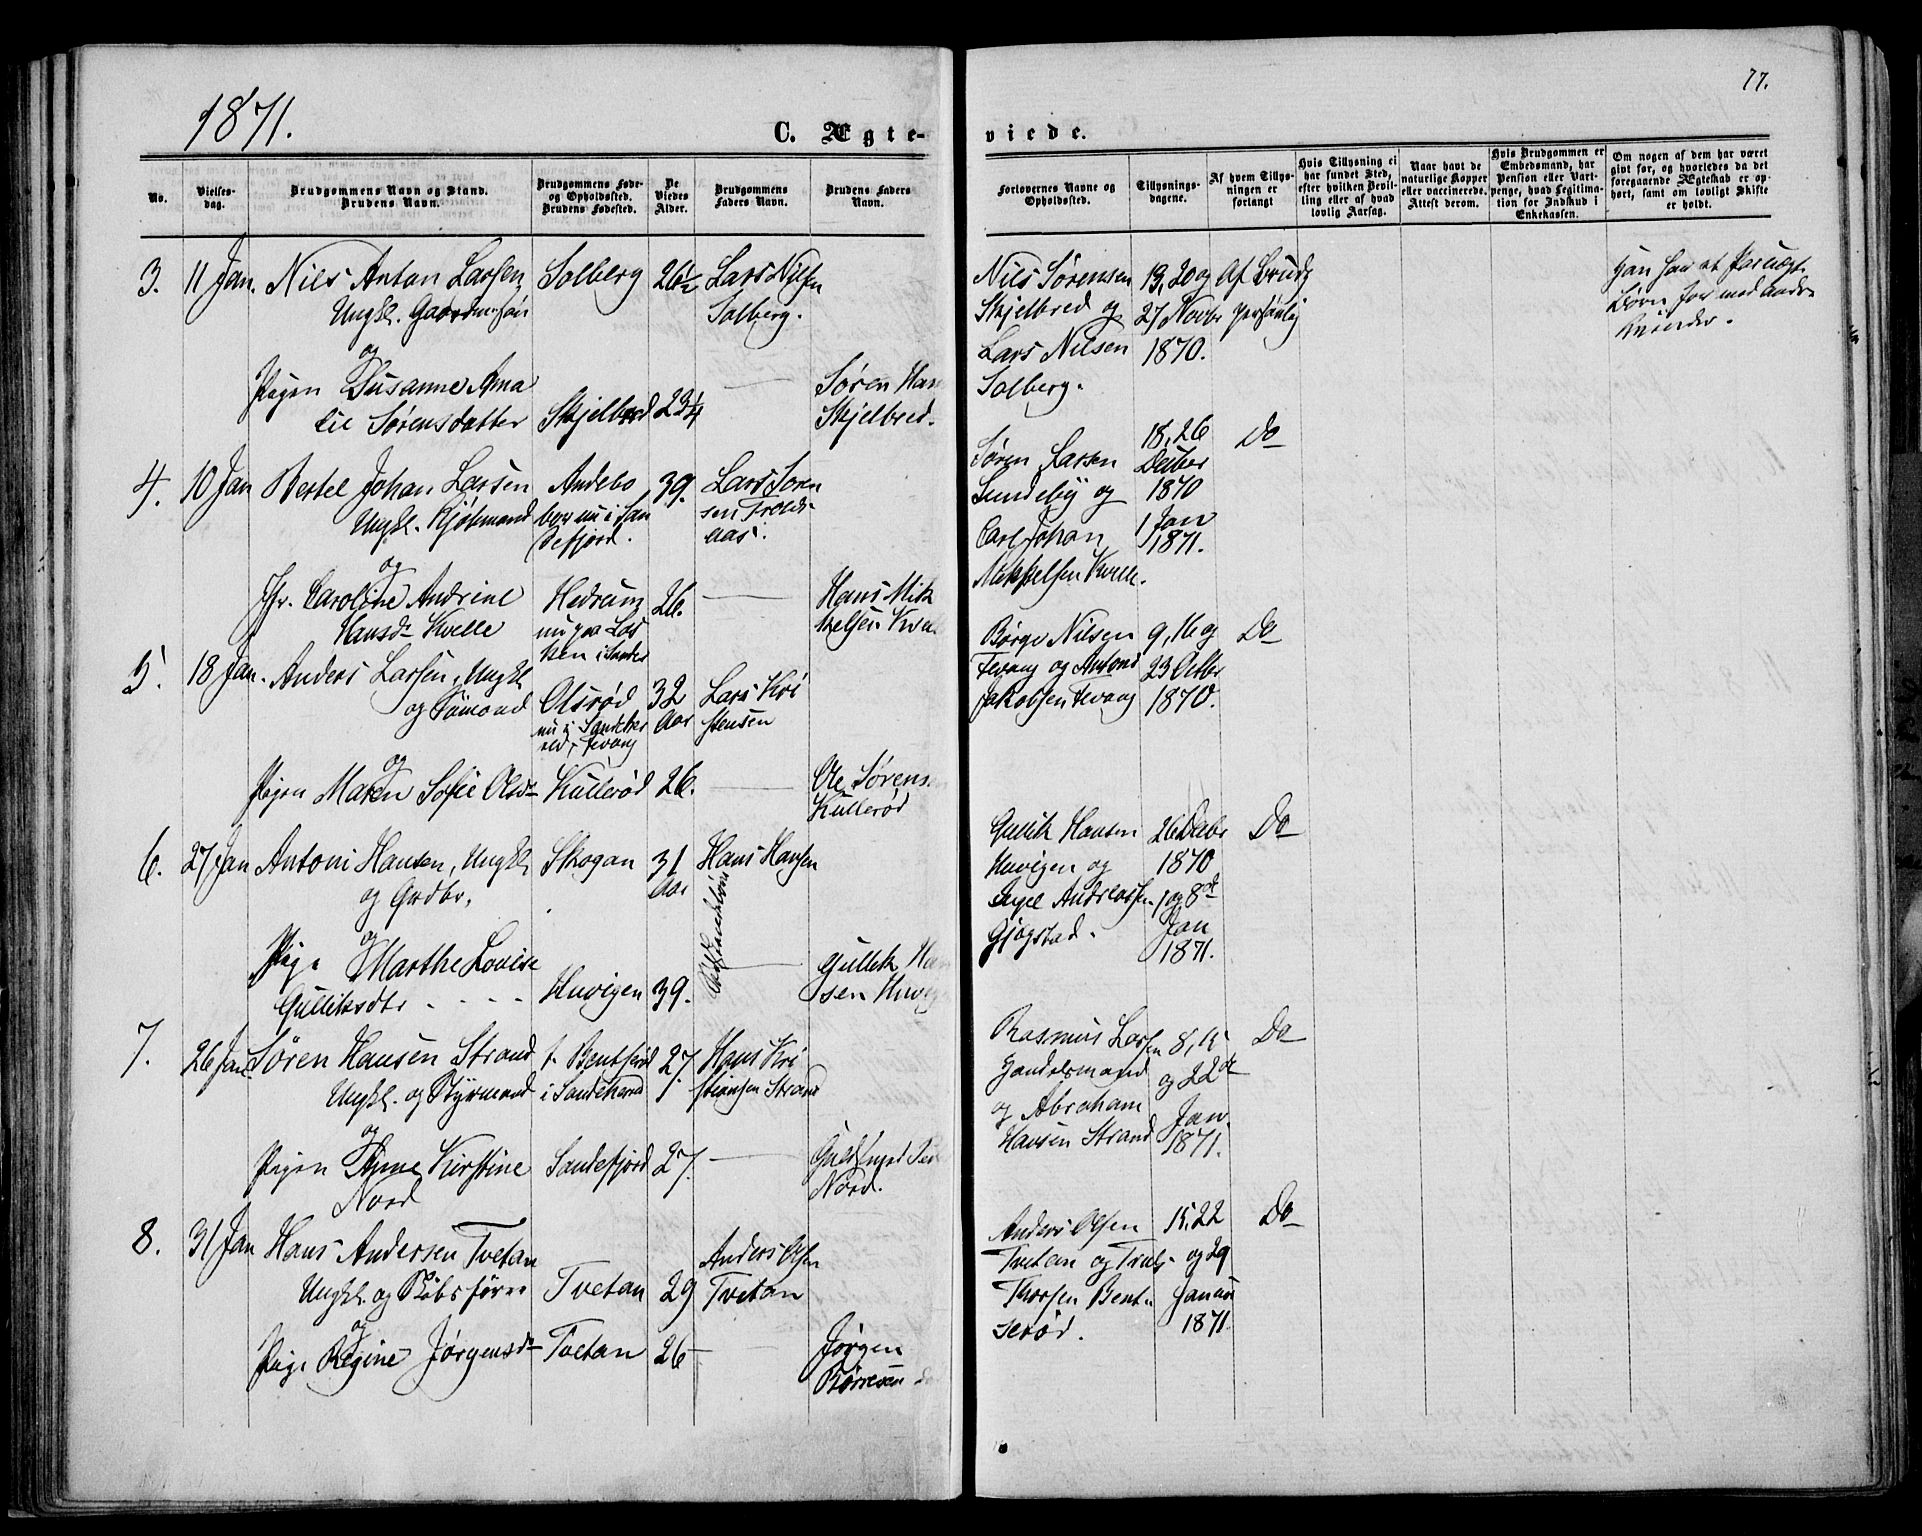 1871.
77.
C. Ægte-
viede.
No.
Vielses-
dag.
Brudgommens Navn og Stand.
Brudens Navn.
Brudgommens Føde-
og Opholdssted.
Brudens Fødested.
De
Viedes
Alder.
Brudgommens
Faders Navn.
Brudens Faders
Navn.
Forlovernes Navne og
Opholdssted.
Tillysnings-
dagene.
Af hvem Tillys-
ningen er
forlangt
Hvis Tillysning ei
har fundet Sted,
efter hvilken Bevil-
ling eller af hvad
lovlig Aarsag.
Naar havt de
naturlige Kopper
eller vaccinerede.
Attest derom.
Hvis Brudgommen er
Embedsmand, har
Pension eller Vart-
penge, hvad Legitima-
tion for Indskud i
Enkekassen.
Om nogen af dem har været
gift før, og hvorledes da det
foregaaende Ægteskab er op-
hørt, samt om lovligt Skifte
er holdt.
3. 11 Jan. Nils Anton Larsen Solberg 26½ Lars Nilsen
Ungkl. Solberg.
og
Pigen Susanne Ama
lie Sørensdatter Skjelbred 23¼ Søren Han
Skjelbred.
Nils Sørensen 13, 20 og Af Brudg
Skjelbred og 27 Novbr personlig
Lars Nilsen 1870.
Solberg.
4. 10 Jan Bertel Johan Larsen Andebo 39. Lars Soren
Ungkl. Kjøbmand bor nu i San sen Trolds
defjord. aas.
og
Jfr. Caroline Andrine Hedrum 26. Hans Mik
Hansd Kvelle kelsen Kvel
Søren Larsen 18, 26
Sundeby og Debr Do
Carl Johan 1870
Mikkelsen Kvelle. 1 Jan
1871.
5. 18 Jan. Anders Larsen, Ungkl Olsrød 32 Lars Kri
og Sømand nu i Sandehe Aar stensen
red, Fevang
og
Pigen Maren Sofie Olsd Kullerød 26. Ole Sørens
Kullerød
Børge Nilsen 9, 16 og Do
Fevang og Anton 23 Octbr
Jakobsen Fevang 1870.
6. 27 Jan Antoni Hansen, Ungkl Skogan 31 Hans Hansen
og Grdbr. Aar
og
Pige Marthe Lovise
Gulliksdtr Huvigen 39. Gullik Han
sen Huvig
Gullik Hansen 26 Debr Do
Huvigen og 1870
Andreassen 1 og 8de
Gjøgstad. Jan
1871.
7. 26 Jan Søren Hansen Strand 27. Hans Kri
Ungkl. og Styrmand i Sandeherred stiansen Strand
og
Pigen Anne Kirstine Sandefjord 27.
Nord Nord.
Rasmus Larsen 8, 15 Do
Handelsmand og 22de
og Abraham Jan
Hansen Strand 1871.
8. 31 Jan Hans Andersen Tvetan Anders Olsen
Ungkl. og Skibsfører Tvetan 29 Tvetan
og
Pige Regine Jørgensd Tvetan 26 Jørgen
Børresen
Anders Olsen 15, 22 Do
Tvetan og Truls og 29
Thorsen Bent Januar
serød. 1871.